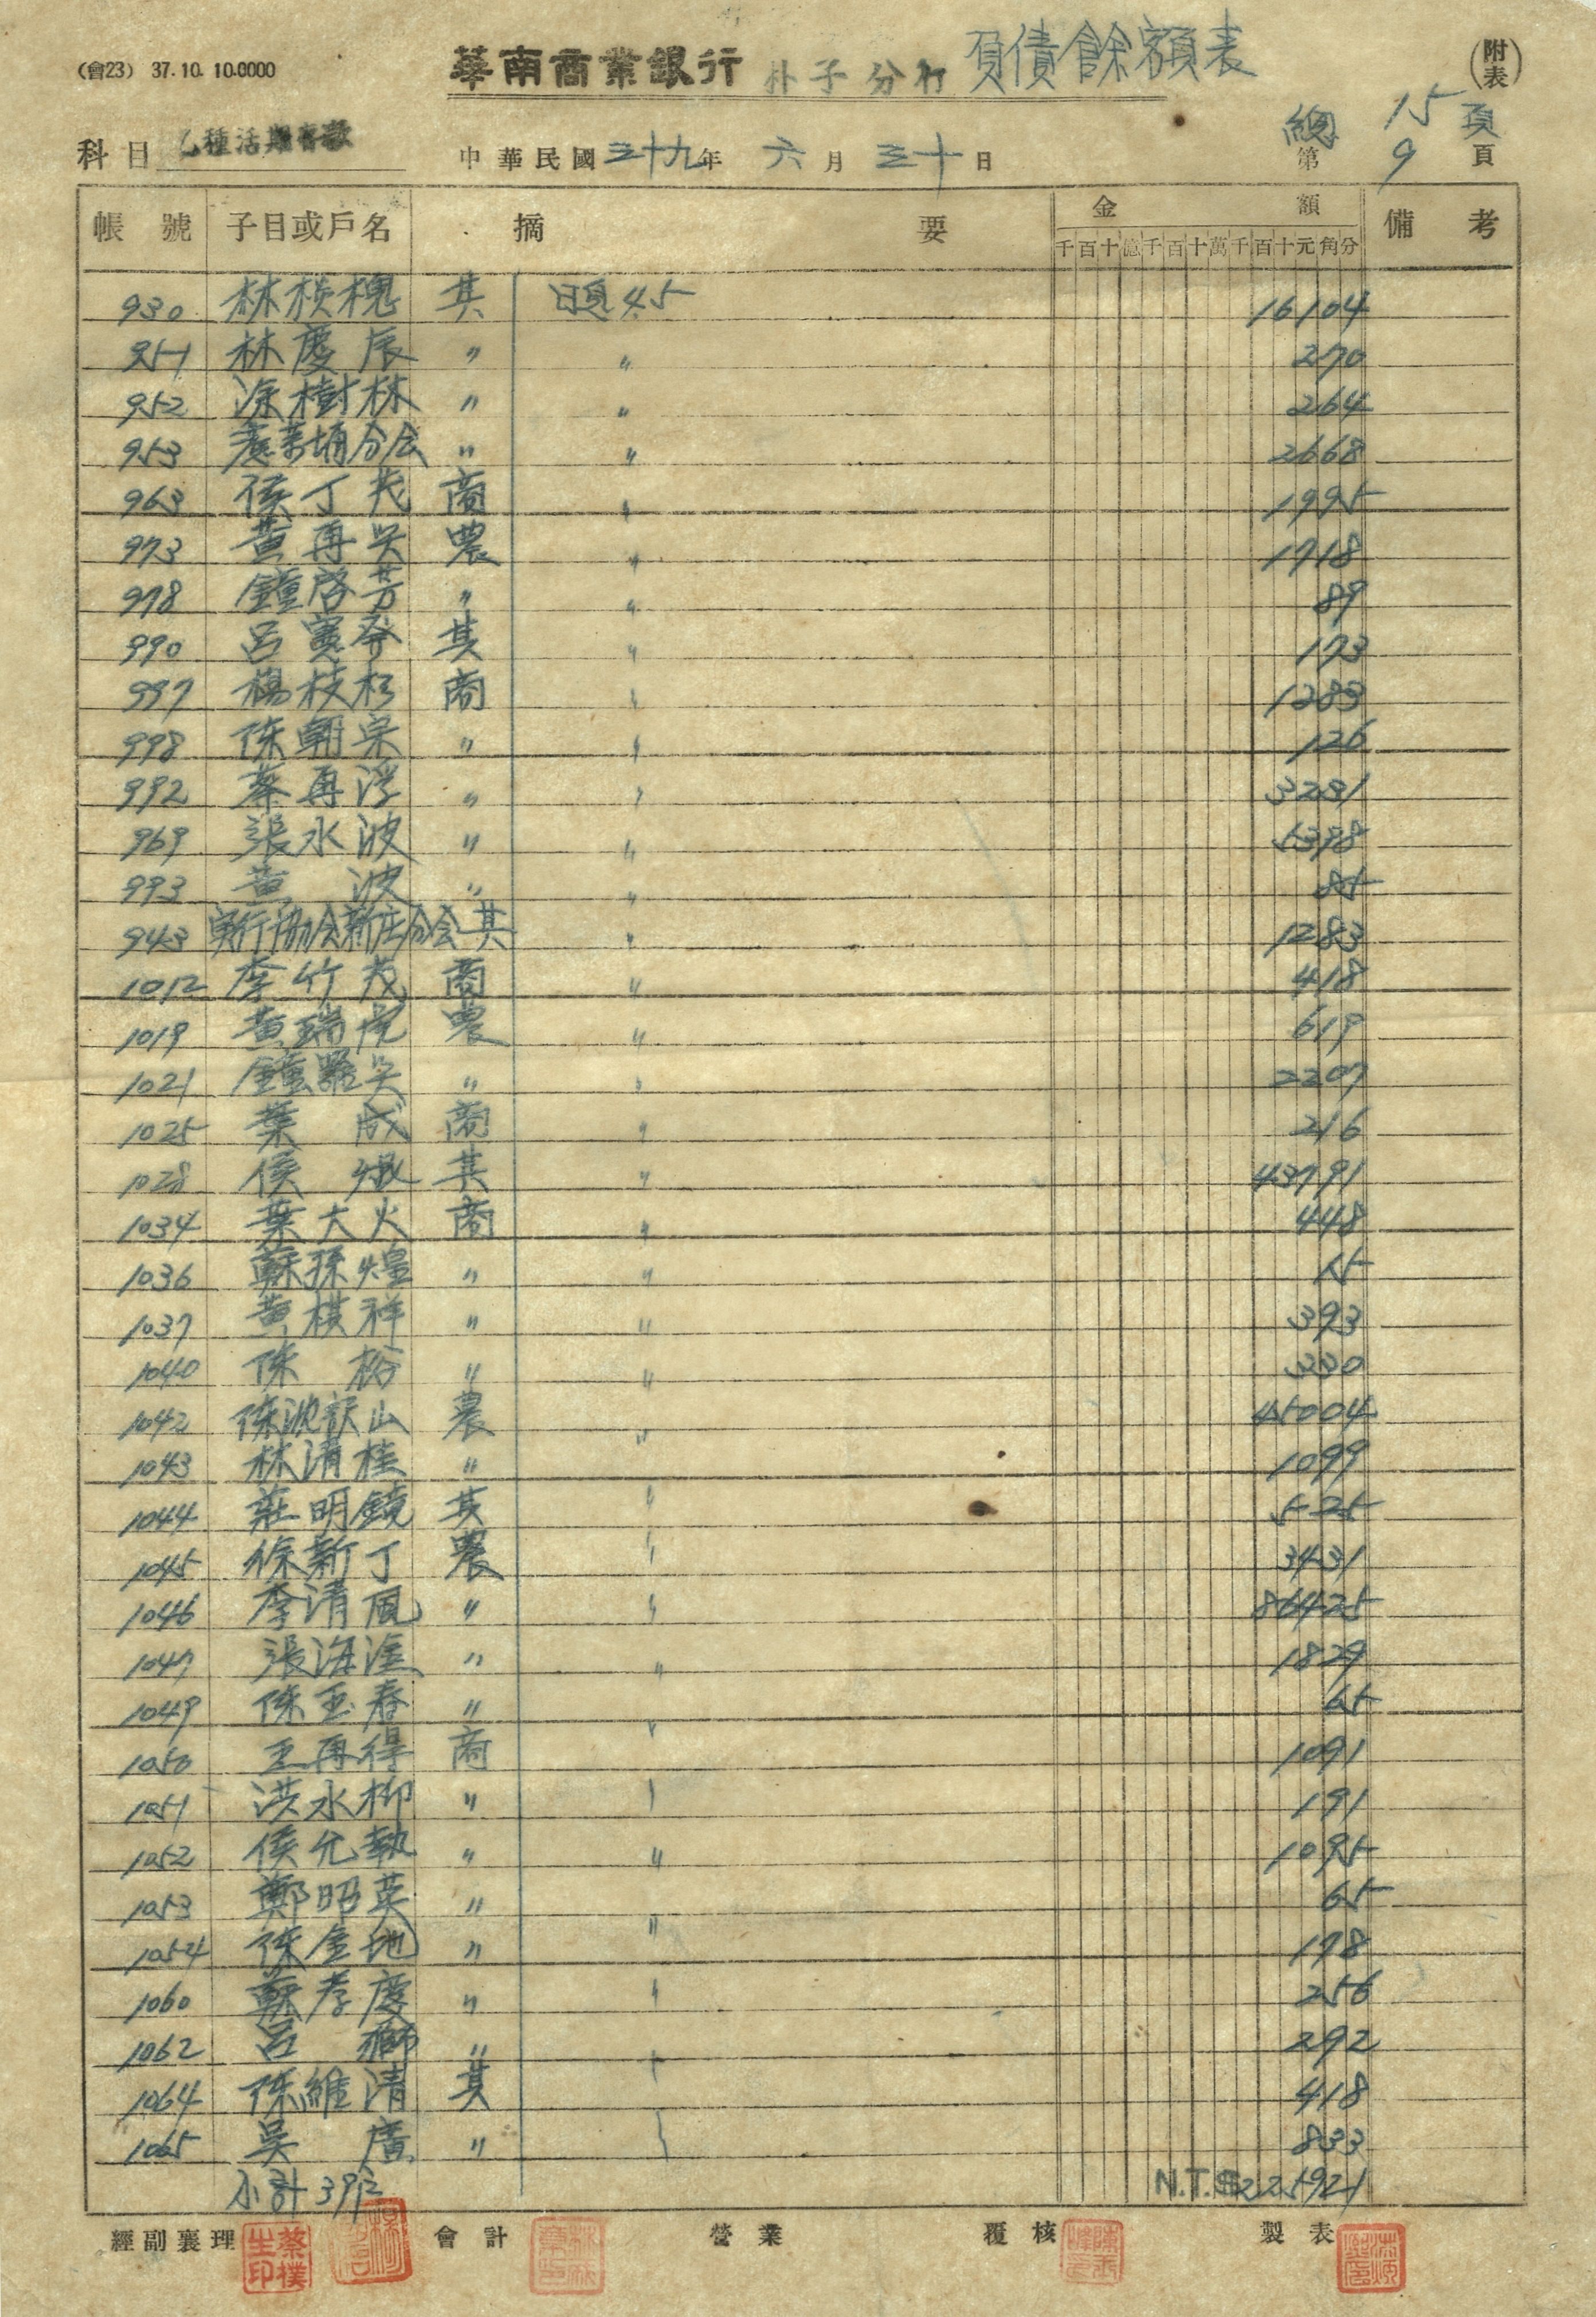 (會23) 37.10.10.0000 華南商業銀行 朴子分行 負債餘額表 (附表)
總 15 頁
科目 乙種活期存款 中華民國三十九年 六月 三十日 第 9 頁
帳號 子目或戶名 摘要 金額 備考
千百十億千百十萬千百十元角分
930 林棪槐 其 日息4.5 16104
951 林慶辰 〃 〃 270
952 涂樹林 〃 〃 264
953 分会 〃 〃 2668
963 侯丁茂 商 〃 1995
973 黃再吳 農 〃 1718
978 鐘啓芳 〃 〃 89
990 呂寳發 其 〃 173
997 楊枝杉 商 〃 1283
998 陳朝宗 〃 〃 126
992 蔡再浮 〃 〃 3291
969 張水波 〃 〃 5398
993 黃波 〃 〃 85
943 実行協会新庄分会 其 〃 1283
1012 李竹茂 商 〃 418
1019 黃瑞虎 農 〃 619
1021 鐘 〃 〃 2207
1025 葉成 商 〃 216
1028 侯 其 〃 43791
1034 葉大火 商 〃 448
1036 蘇孫煌 〃 〃 15
1037 黃棋祥 〃 〃 393
1040 陳裕 〃 〃 330
1042 陳沈 山 農 〃 45004
1043 林清桂 〃 1099
1044 莊明鏡 其 〃 525
1045 徐新丁 農 〃 3431
1046 李清風 〃 〃 86425
1047 張海滙 〃 〃 1829
1049 陳玉春 〃 〃 65
1050 王再得 商 1091
1051 洪水柳 〃 〃 191
1052 侯允執 〃 〃 1095
1053 鄭昭英 〃 〃 65
1054 陳金地 〃 178
1060 蘇孝慶 〃 〃 256
1062 呂獅 〃 〃 292
1064 陳維清 其 〃 418
1065 吳廣 〃 〃 833
小計 39户 N.T.$225921
經副襄理 蔡樸生印 會計 營業 覆核 製表